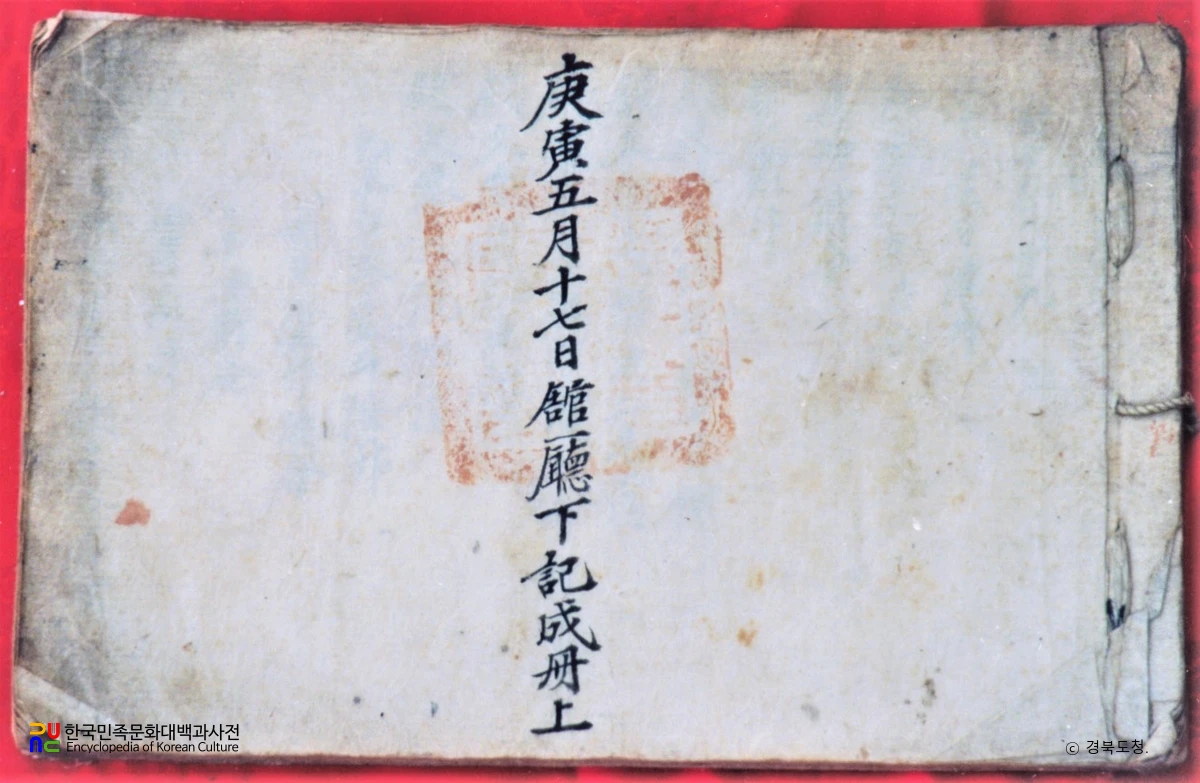 庚寅五月十七日舘廳下記成册上
한국민족문화대백과사전
Encyclopedia of Korean Culture
© 경북도청.